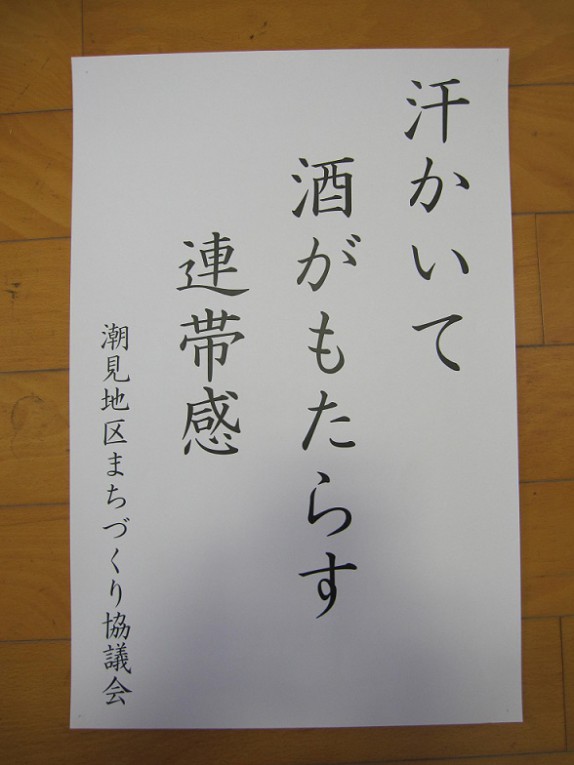 汗かいて
酒がもたらす
連帯感
潮見地区まちづくり協議会